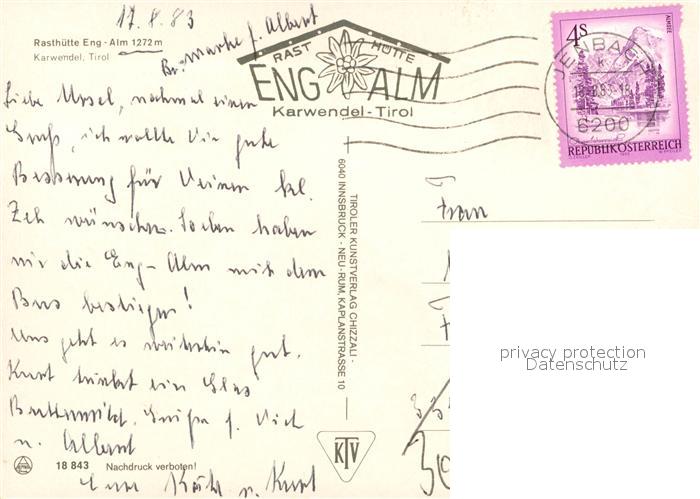 17.8.83
Rasthütte Eng - Alm 1272 m
Karwendel, Tirol
Br. Marke f. Albert
RAST HÜTTE
ENG ALM
Karwendel-Tirol
4s
ALMSEE
JENBACH
6200
REPUBLIK ÖSTERREICH
Liebe Ursel, nochmal einen
Gruß, ich wollte Dir gute
Besserung für Deinen kl.
Zeh wünschen. Soeben haben
wir die Eng-Alm mit dem
Bus bestiegen!
Uns geht es weiterhin gut.
Kurt trinkt ein Glas
Buttermilch. Grüße f. Dich
u. Albert
Eure Käthe u. Kurt
TIROLER KUNSTVERLAG CHIZZALI -
6040 INNSBRUCK - NEU-RUM, KAPLANSTRASSE 10
Frau
KTV
18 843 Nachdruck verboten!
privacy protection
Datenschutz